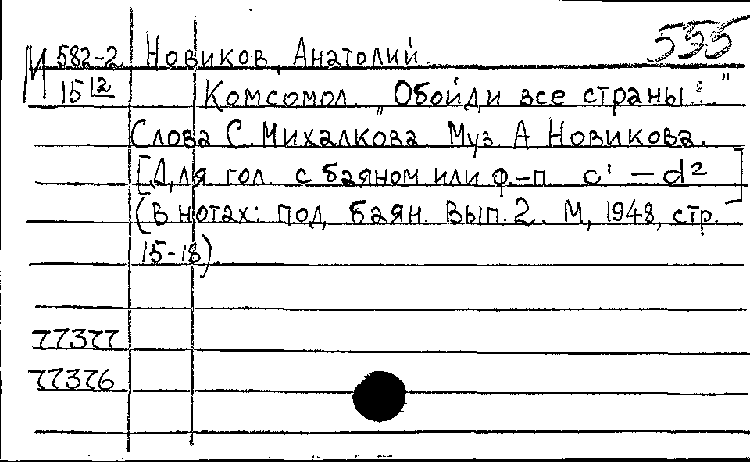 535
М 582-2 Новиков, Анатолий.
15 12 Комсомол. "Обойди все страны..."
Слова С. Михалкова. Муз. А. Новикова.
[Для гол. с баяном или ф.-п. c¹ – d²]
(В нотах: под баян. Вып. 2. М., 1948, стр.
15-18).
77377
77376